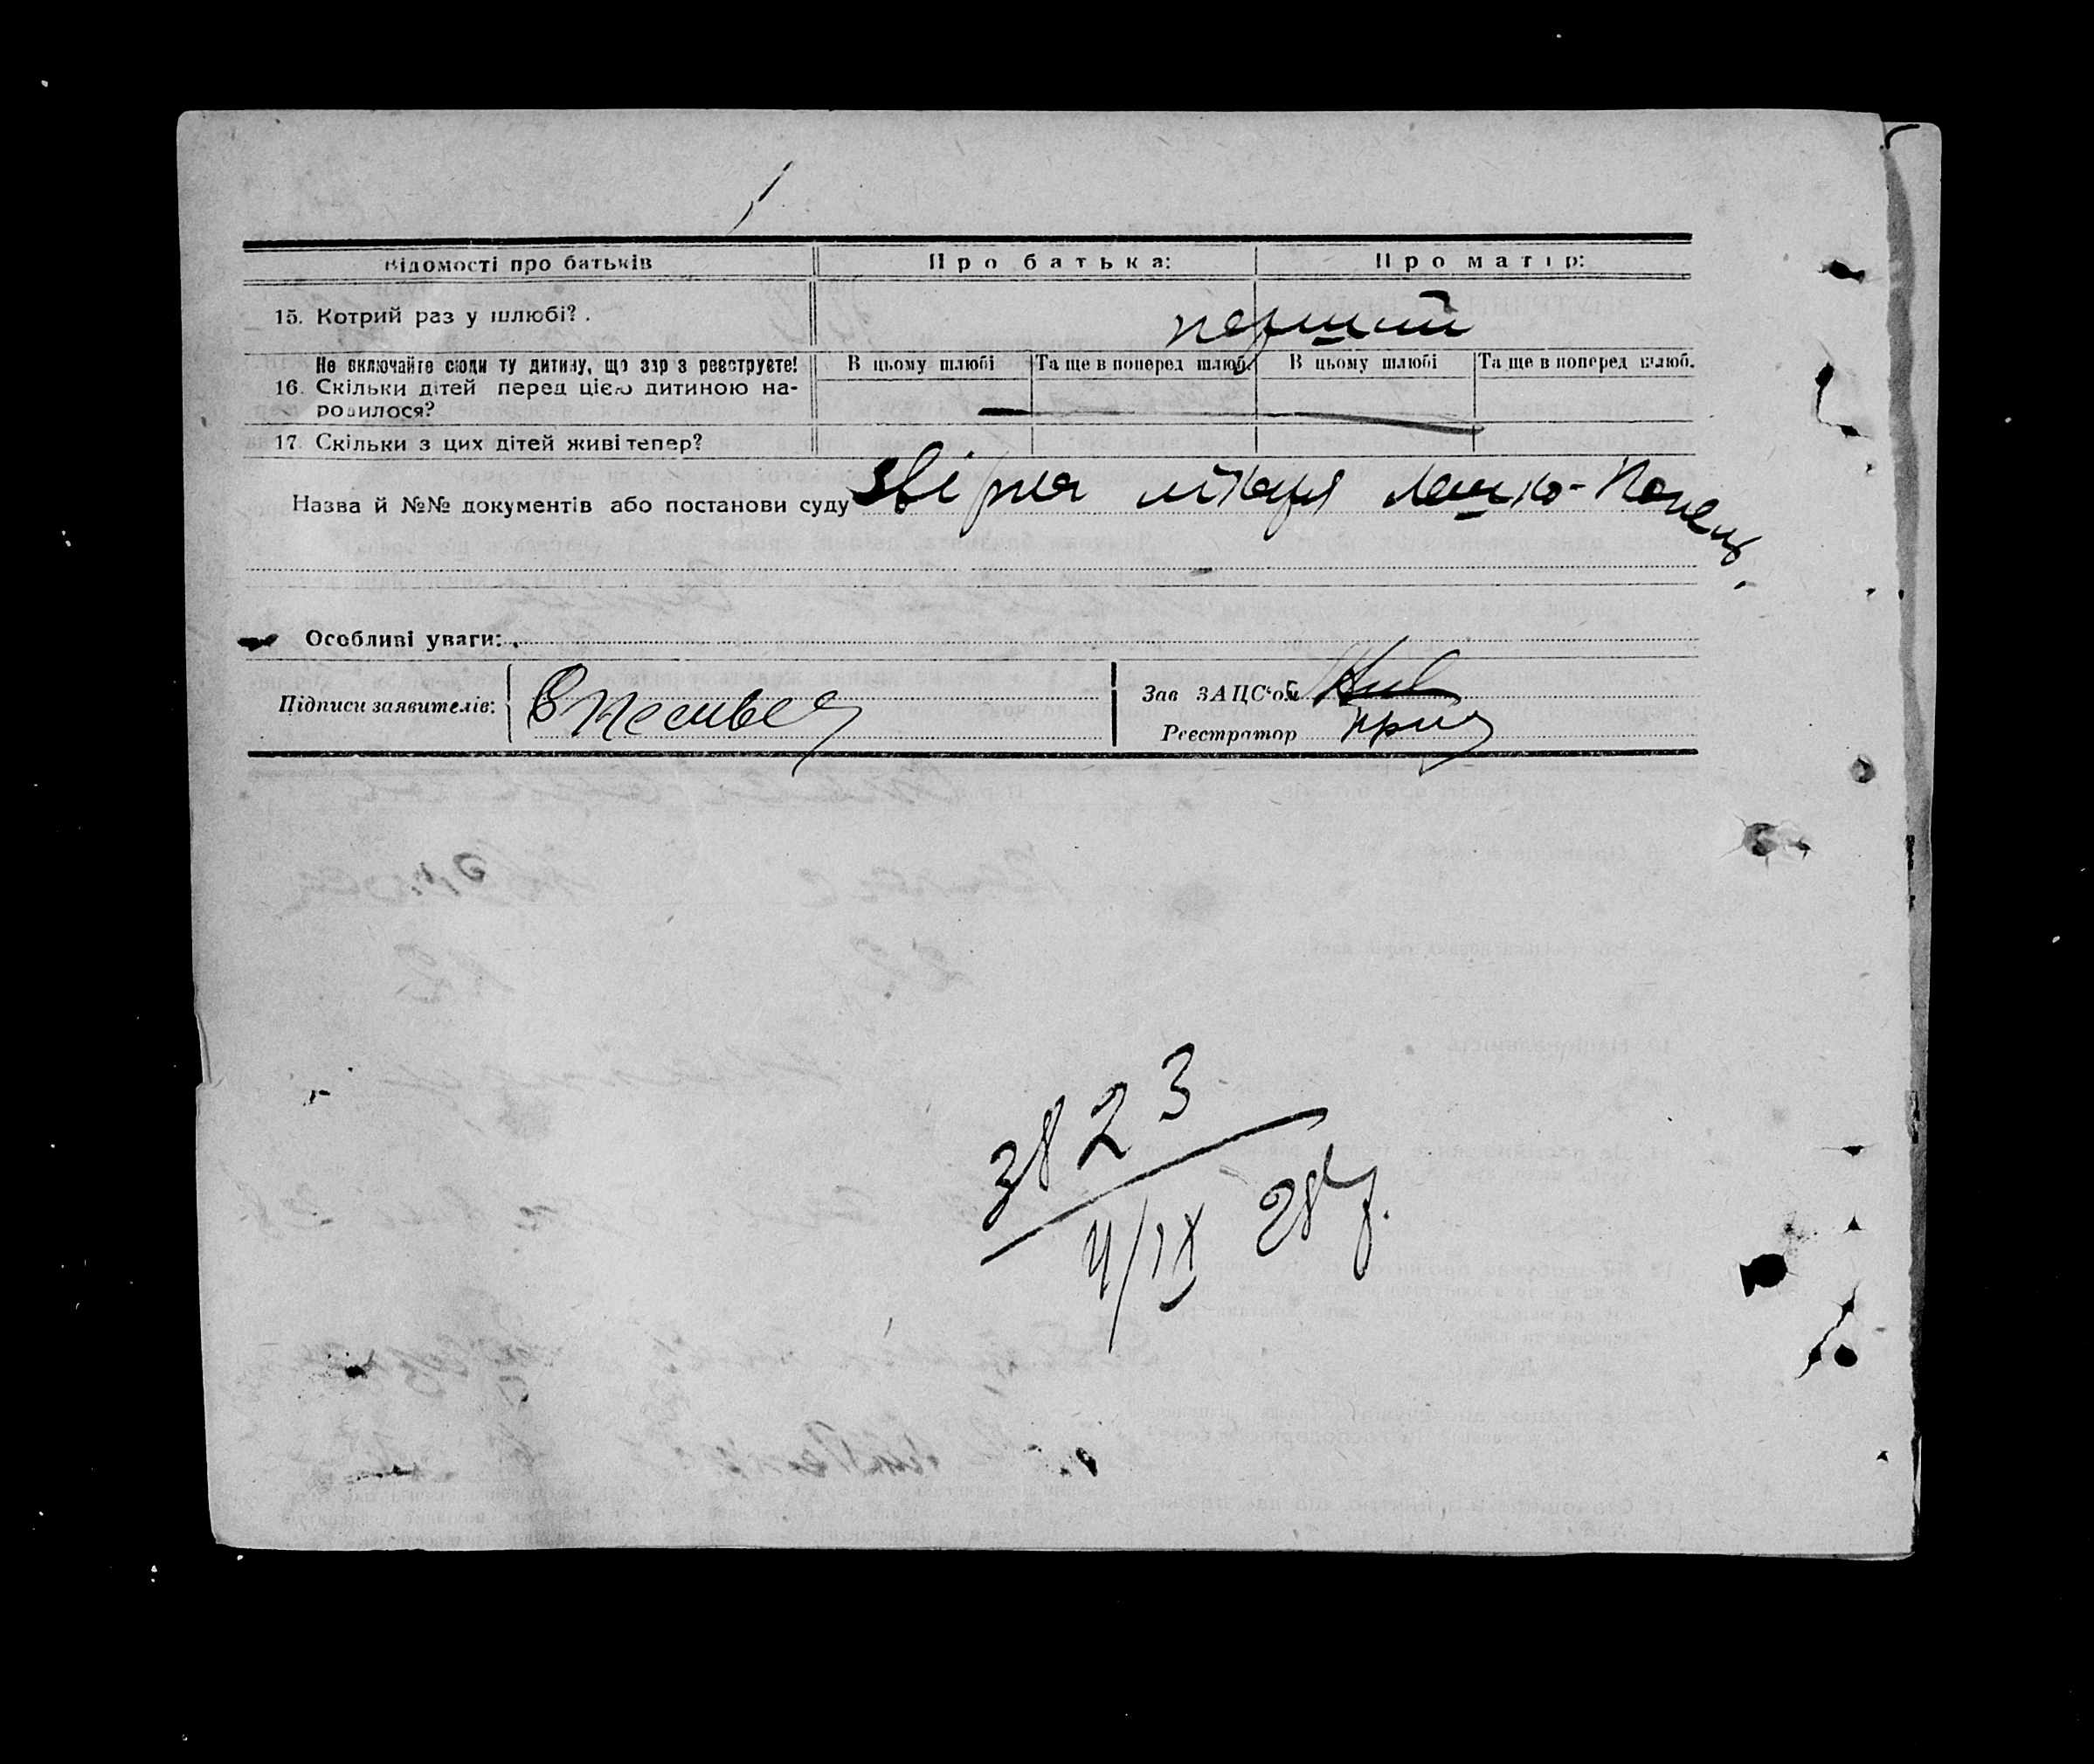 Відомості про батьків Про батька: Про матір:
15. Котрий раз у шлюбі? . перший
Не включайте сюди ту дитину, що зар з реєструєте! В цьому шлюбі Та ще в поперед шлюб. В цьому шлюбі Та ще в поперед шлюб.
16. Скільки дітей перед цією дитиною на-
родилося? — —
17. Скільки з цих дітей живі тепер?
Назва й №№ документів або постанови суду звірка лікаря
Особливі уваги:
Підписи заявителів: Зав ЗАЦС'ом
Реєстратор
3823
4/IX 28 р.